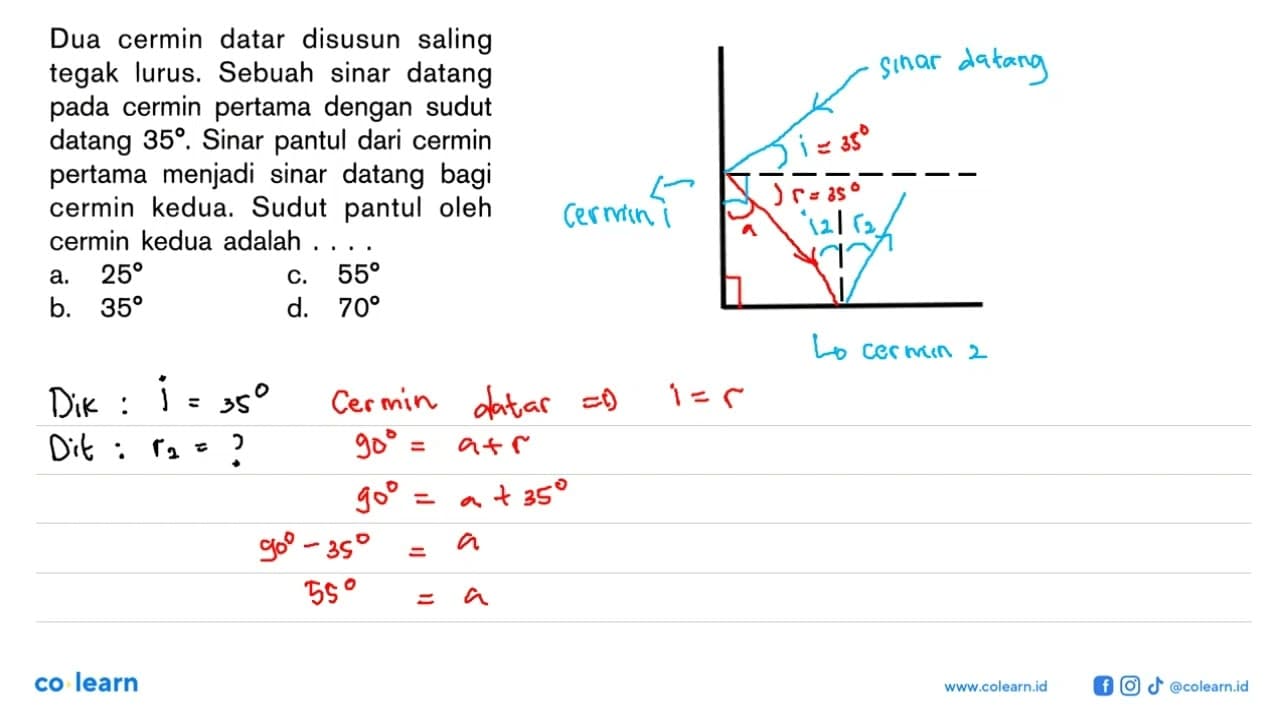 Dua cermin datar disusun saling
tegak lurus. Sebuah sinar datang
pada cermin pertama dengan sudut
datang 35°. Sinar pantul dari cermin
pertama menjadi sinar datang bagi
cermin kedua. Sudut pantul oleh
cermin kedua adalah . . . .
a. 25° c. 55°
b. 35° d. 70°
sinar datang
i = 35°
r = 35°
cermin i
a
i2 r2
cermin 2
Dik : i = 35° Cermin datar => i = r
Dit : r2 = ? 90° = a + r
90° = a + 35°
90° - 35° = a
55° = a
co learn
www.colearn.id
@colearn.id